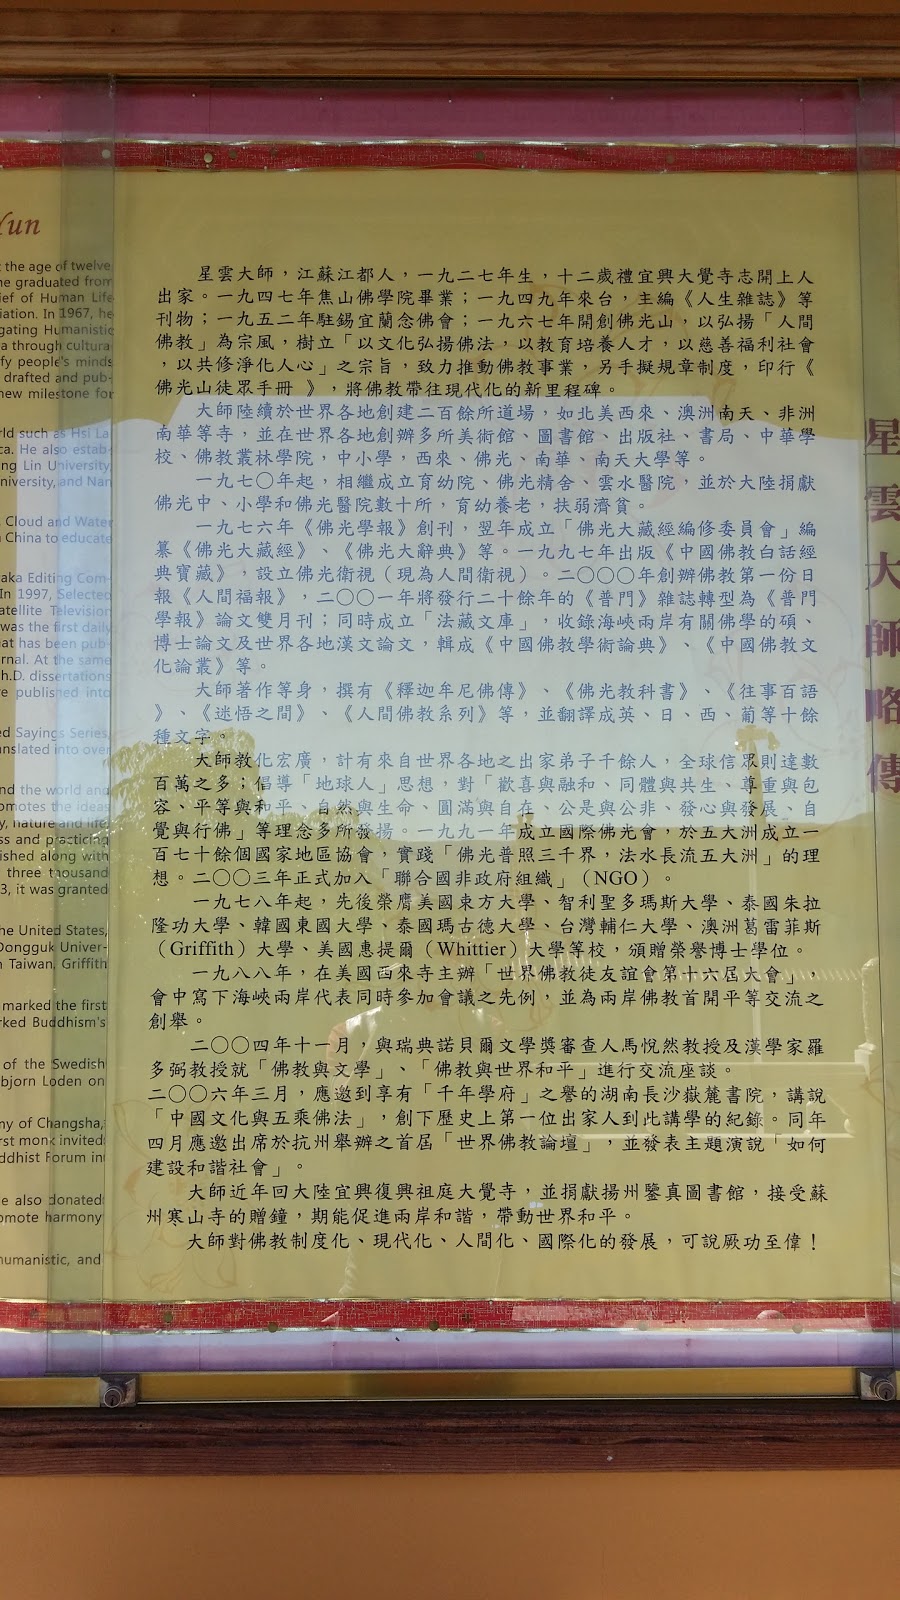 Yun
t the age of twelve
he graduated from
ief of Human Life
iation. In 1967, he
gating Humanistic
a through cultura
fy people's minds
drafted and pub-
new milestone for
rld such as Hsi La
ca. He also estab-
ng Lin University
niversity, and Nan
Cloud and Water
n China to educate
aka Editing Com-
In 1997, Selected
atellite Television
was the first daily
eat has been pub-
rnal. At the same
h.D. dissertations
re published into
ed Sayings Series,
anslated into over
nd the world and
omotes the ideas
y, nature and life,
ss and practicing
ished along with
three thousand
3, it was granted
he United States,
Dongguk Univer-
n Taiwan, Griffith
marked the first
rked Buddhism's
of the Swedish
bjorn Loden on
my of Changsha,
rst monk invited
ddhist Forum in
e also donated
omote harmony
humanistic, and
星雲大師，江蘇江都人，一九二七年生，十二歲禮宜興大覺寺志開上人
出家。一九四七年焦山佛學院畢業；一九四九年來台，主編《人生雜誌》等
刊物；一九五二年駐錫宜蘭念佛會；一九六七年開創佛光山，以弘揚「人間
佛教」為宗風，樹立「以文化弘揚佛法，以教育培養人才，以慈善福利社會
，以共修淨化人心」之宗旨，致力推動佛教事業，另手擬規章制度，印行《
佛光山徒眾手冊 》，將佛教帶往現代化的新里程碑。
大師陸續於世界各地創建二百餘所道場，如北美西來、澳洲南天、非洲
南華等寺，並在世界各地創辦多所美術館、圖書館、出版社、書局、中華學
校、佛教叢林學院，中小學，西來、佛光、南華、南天大學等。
一九七〇年起，相繼成立育幼院、佛光精舍、雲水醫院，並於大陸捐獻
佛光中、小學和佛光醫院數十所，育幼養老，扶弱濟貧。
一九七六年《佛光學報》創刊，翌年成立「佛光大藏經編修委員會」編
纂《佛光大藏經》、《佛光大辭典》等。一九九七年出版《中國佛教白話經
典寶藏》，設立佛光衛視（現為人間衛視）。二〇〇〇年創辦佛教第一份日
報《人間福報》，二〇〇一年將發行二十餘年的《普門》雜誌轉型為《普門
學報》論文雙月刊；同時成立「法藏文庫」，收錄海峽兩岸有關佛學的碩、
博士論文及世界各地漢文論文，輯成《中國佛教學術論典》、《中國佛教文
化論叢》等。
大師著作等身，撰有《釋迦牟尼佛傳》、《佛光教科書》、《往事百語
》、《迷悟之間》、《人間佛教系列》等，並翻譯成英、日、西、葡等十餘
種文字。
大師教化宏廣，計有來自世界各地之出家弟子千餘人，全球信眾則達數
百萬之多；倡導「地球人」思想，對「歡喜與融和、同體與共生、尊重與包
容、平等與和平、自然與生命、圓滿與自在、公是與公非、發心與發展、自
覺與行佛」等理念多所發揚。一九九一年成立國際佛光會，於五大洲成立一
百七十餘個國家地區協會，實踐「佛光普照三千界，法水長流五大洲」的理
想。二〇〇三年正式加入「聯合國非政府組織」（NGO）。
一九七八年起，先後榮膺美國東方大學、智利聖多瑪斯大學、泰國朱拉
隆功大學、韓國東國大學、泰國瑪古德大學、台灣輔仁大學、澳洲葛雷菲斯
（Griffith）大學、美國惠提爾（Whittier）大學等校，頒贈榮譽博士學位。
一九八八年，在美國西來寺主辦「世界佛教徒友誼會第十六屆大會」，
會中寫下海峽兩岸代表同時參加會議之先例，並為兩岸佛教首開平等交流之
創舉。
二〇〇四年十一月，與瑞典諾貝爾文學獎審查人馬悅然教授及漢學家羅
多弼教授就「佛教與文學」、「佛教與世界和平」進行交流座談。
二〇〇六年三月，應邀到享有「千年學府」之譽的湖南長沙嶽麓書院，講說
「中國文化與五乘佛法」，創下歷史上第一位出家人到此講學的紀錄。同年
四月應邀出席於杭州舉辦之首屆「世界佛教論壇」，並發表主題演說「如何
建設和諧社會」。
大師近年回大陸宜興復興祖庭大覺寺，並捐獻揚州鑒真圖書館，接受蘇
州寒山寺的贈鐘，期能促進兩岸和諧，帶動世界和平。
大師對佛教制度化、現代化、人間化、國際化的發展，可說厥功至偉！
星雲大師略傳